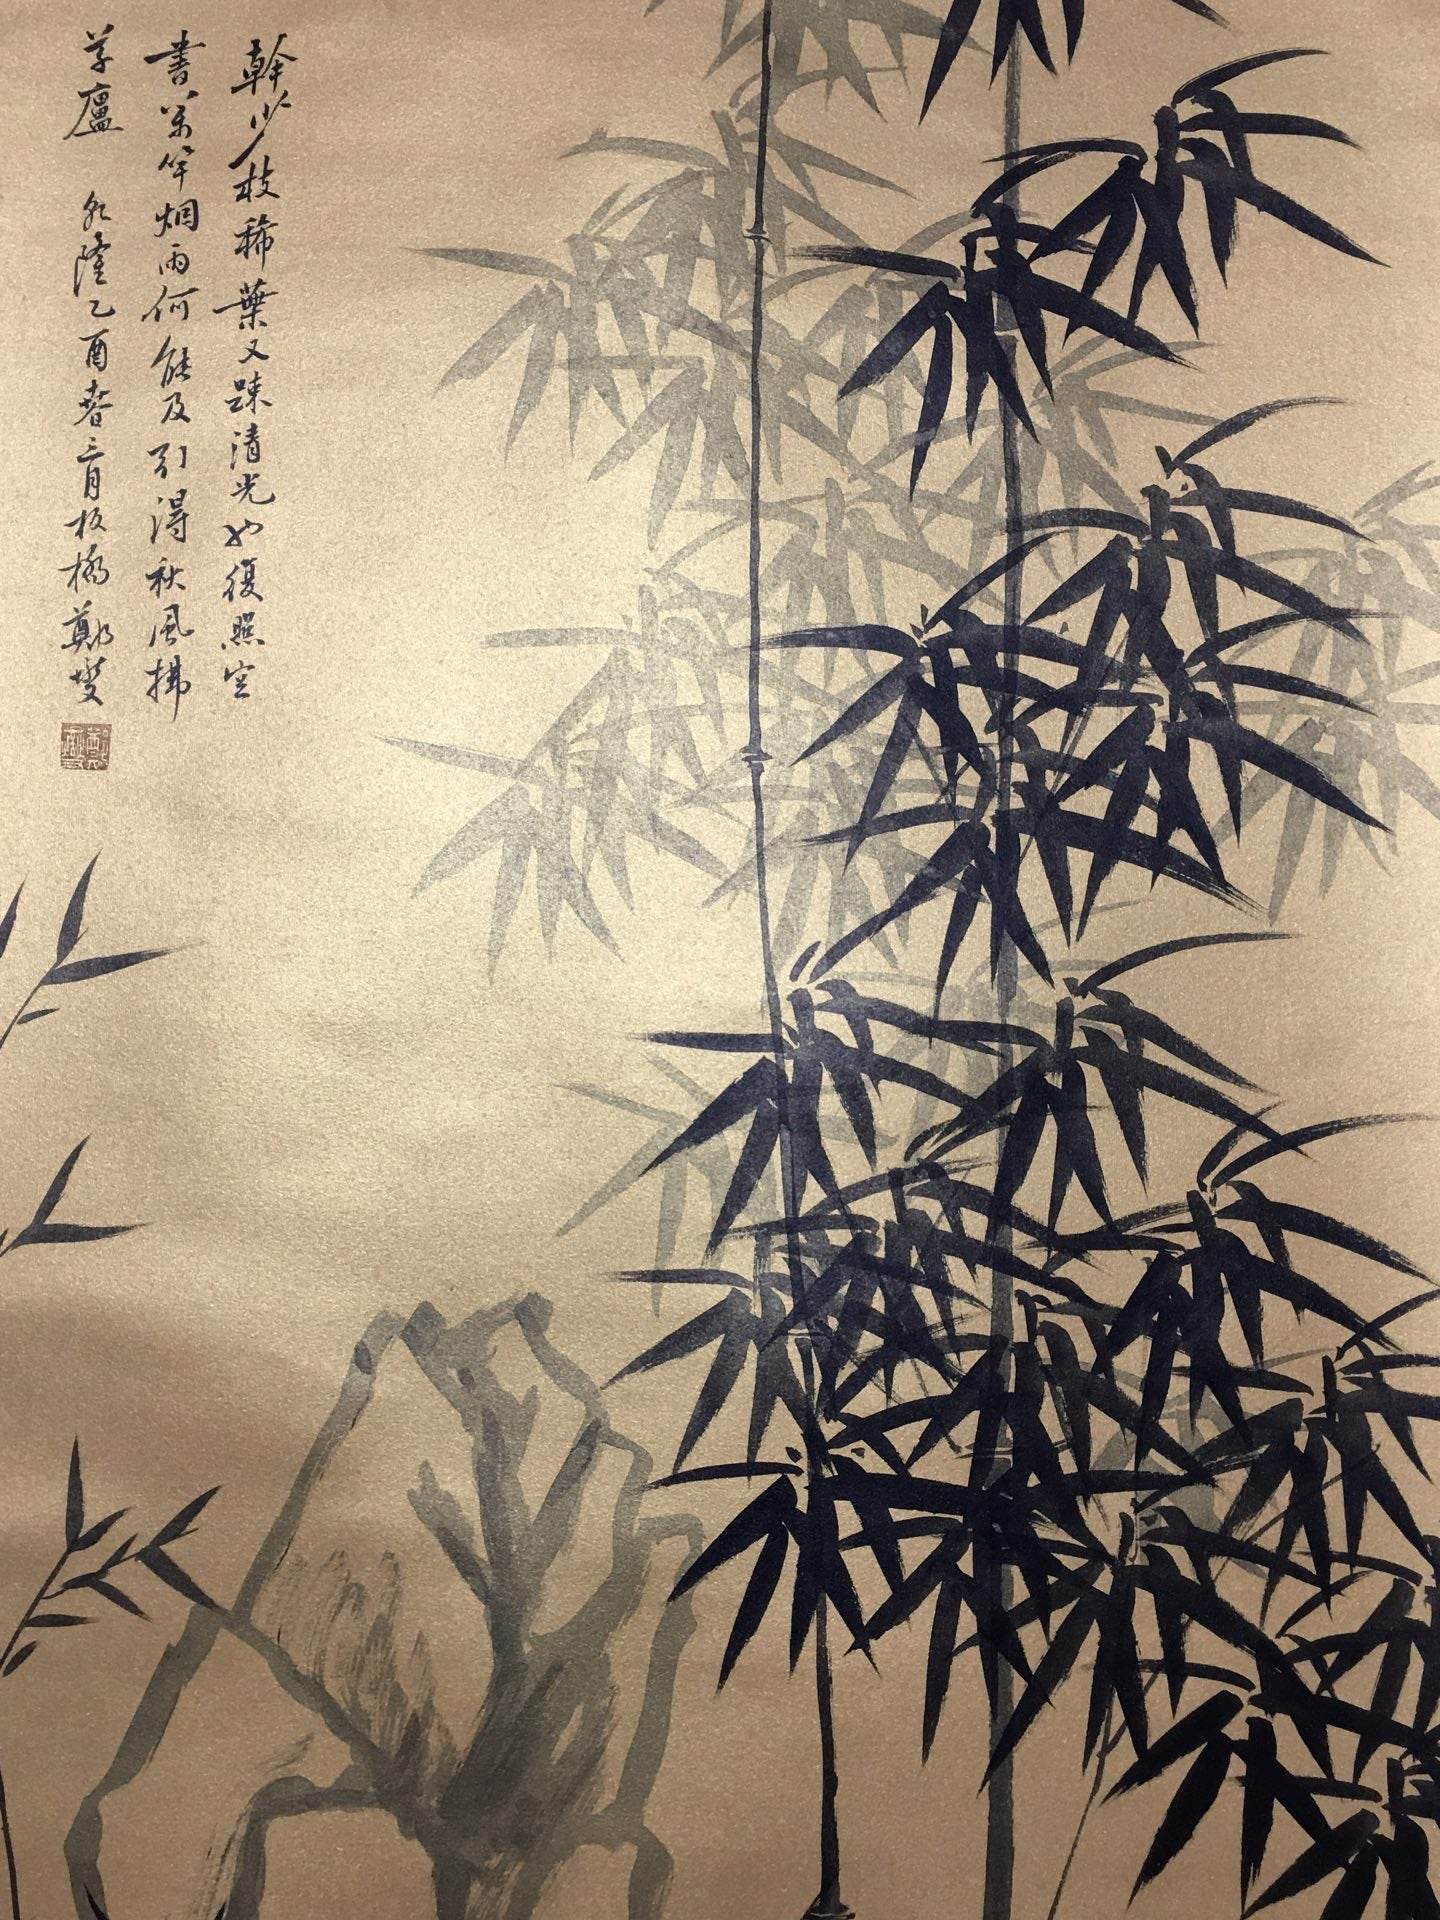 幹少枝稀葉又疎清光也復照空
書萬竿烟雨何能及引得秋風拂
草廬 乾隆乙酉春三月板橋鄭燮